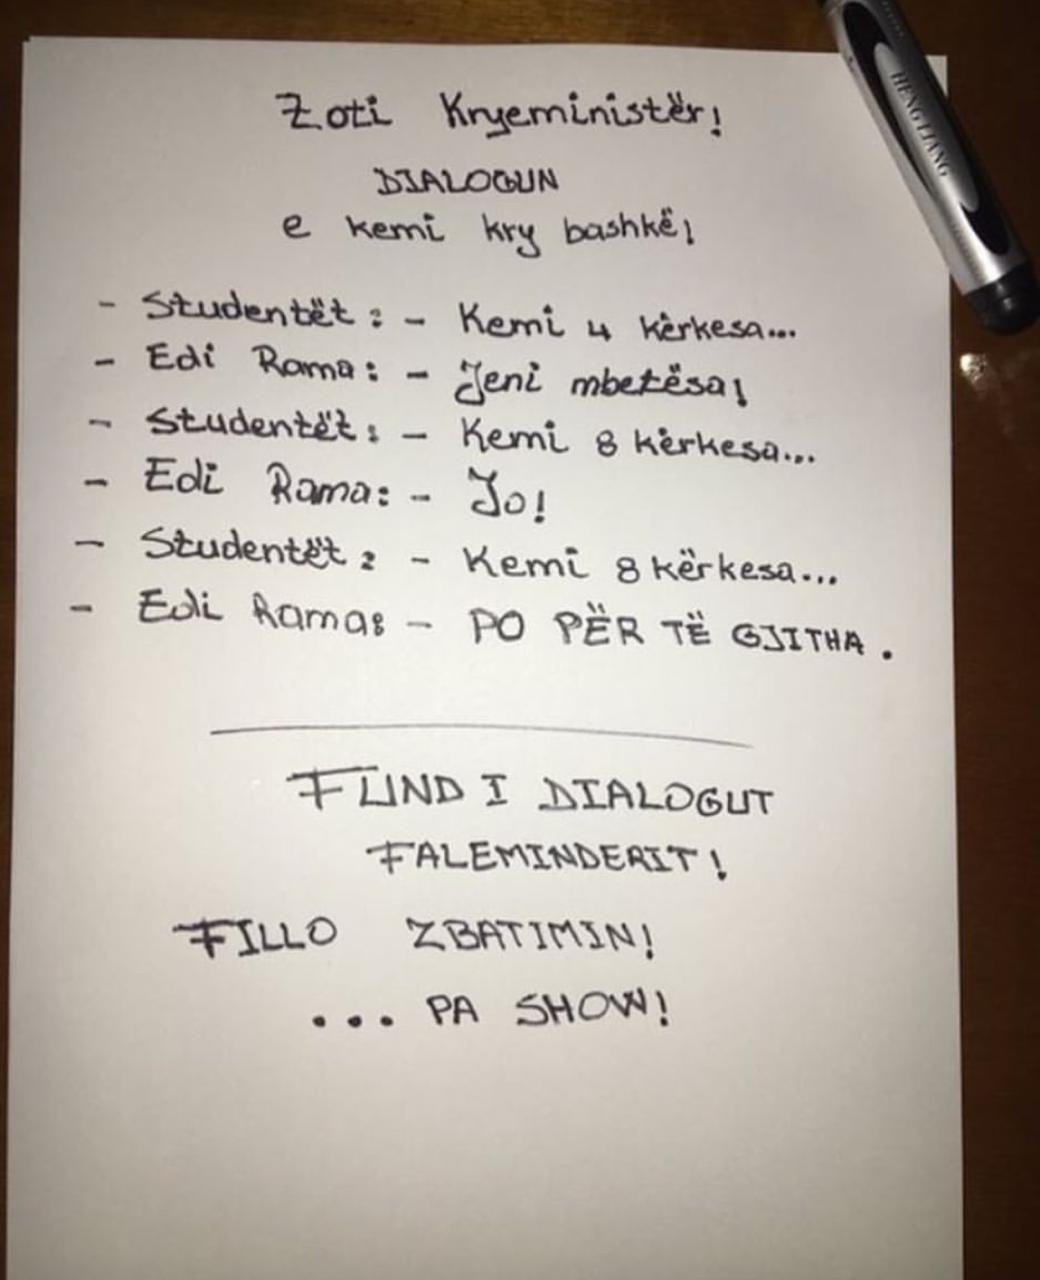 Zoti Kryeministër!
DIALOGUN
e kemi kry bashkë!
- Studentët: - Kemi 4 kërkesa...
- Edi Rama: - Jeni mbetësa!
- Studentët: - Kemi 8 kërkesa...
- Edi Rama: - Jo!
- Studentët: - Kemi 8 kërkesa...
- Edi Rama: - PO PËR TË GJITHA.
FUND I DIALOGUT
FALEMINDERIT!
FILLO ZBATIMIN!
... PA SHOW!
HENG LIANG